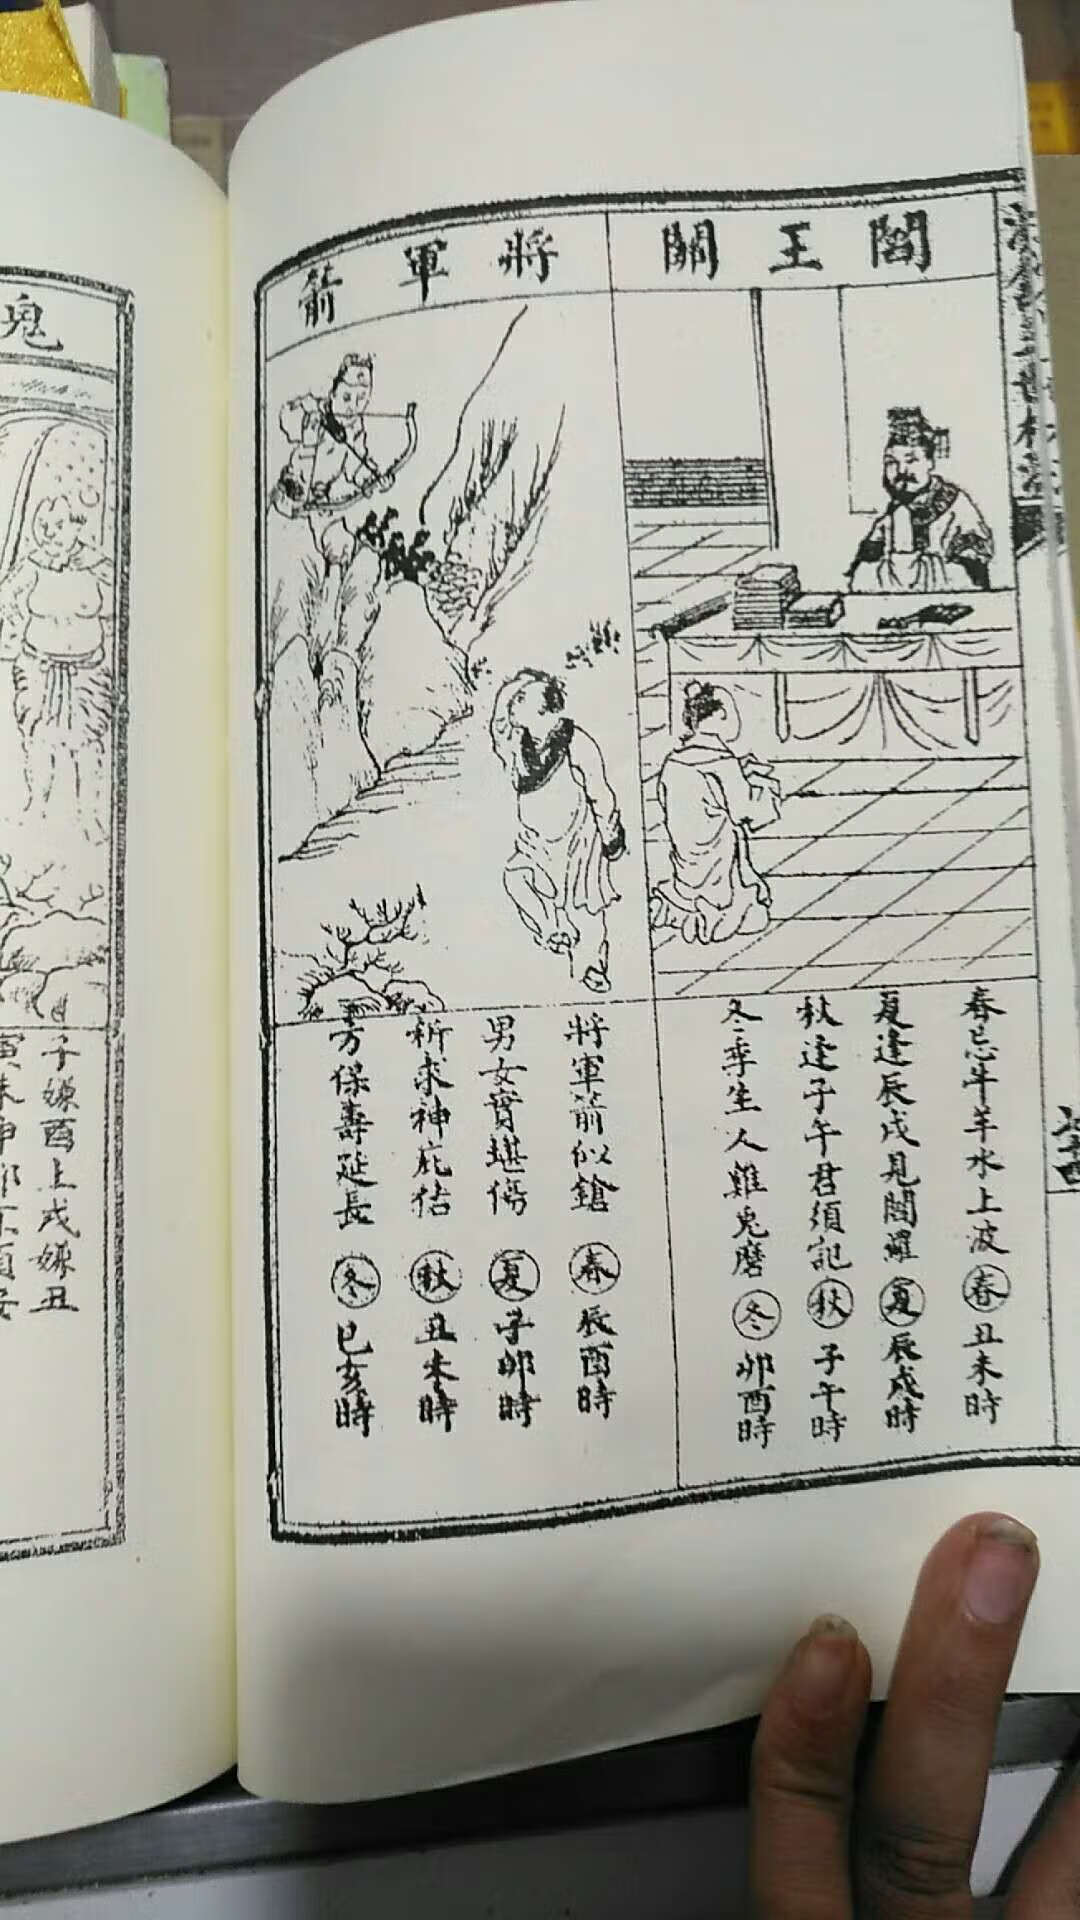 閻王關
春忌牛羊水上波㊀春丑未時
夏逢辰戌見閻羅夏辰戌時
秋逢子午君須記秋子午時
冬季生人雞兔磨冬卯酉時
將軍箭
將軍箭似鎗春辰酉時
男女實堪傷夏子卯時
祈求神庇佑秋丑未時
方保壽延長冬巳亥時
鬼
子嫌酉上戌嫌丑
寅未申卯